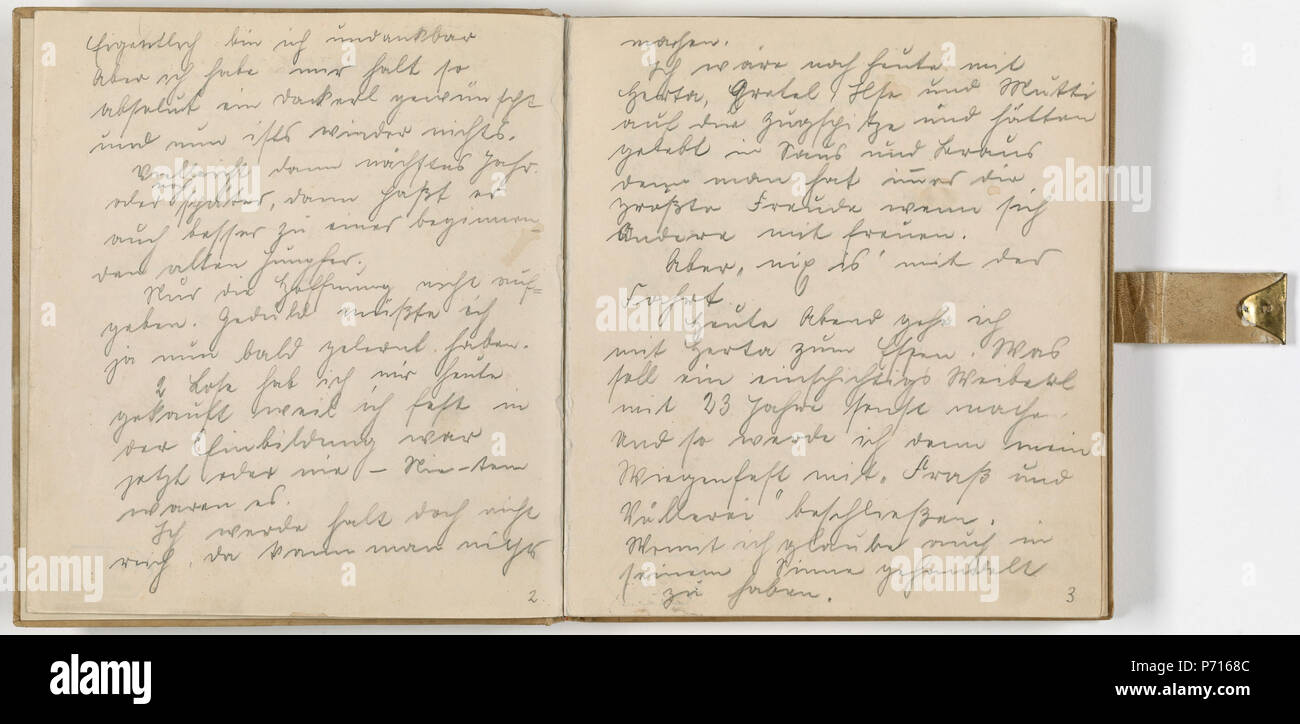 Eigentlich bin ich undankbar
Aber ich habe mir halt so
absolut ein Dackerl gewünscht
und nun ists wieder nichts.
Vielleicht dann nächstes Jahr.
oder noch später, dann paßt es
auch besser zu einer beginnen-
den alten Jungfer.
Nur die Hoffnung nicht auf=
geben. Geduld müßte ich
ja nun bald gelernt haben.
2 Lose hab ich mir heute
gekauft weil ich fest in
der Einbildung war
jetzt oder nie – Nie-ten
waren es.
Ich werde halt doch nicht
reich, da kann man nichts
2
machen.
Ich wäre noch heute mit
Herta, Gretel, Ilse und Mutti
auf die Zugspitze und hätten
gelebt in Saus und Braus
denn man hat immer die
größte Freude wenn sich
Andere mit freuen.
Aber, nix is' mit der
Fahrt.
Heute Abend gehe ich
mit Herta zum Essen. Was
soll ein einschichtigs Weiberl
mit 23 Jahre sonst machen.
Und so werde ich denn mein
Wiegenfest mit „Fraß und
Völlerei" beschließen.
Womit ich glaube auch in
seinem Sinne gehandelt
zu haben.
3
alamy
Image ID: P7168C
www.alamy.com